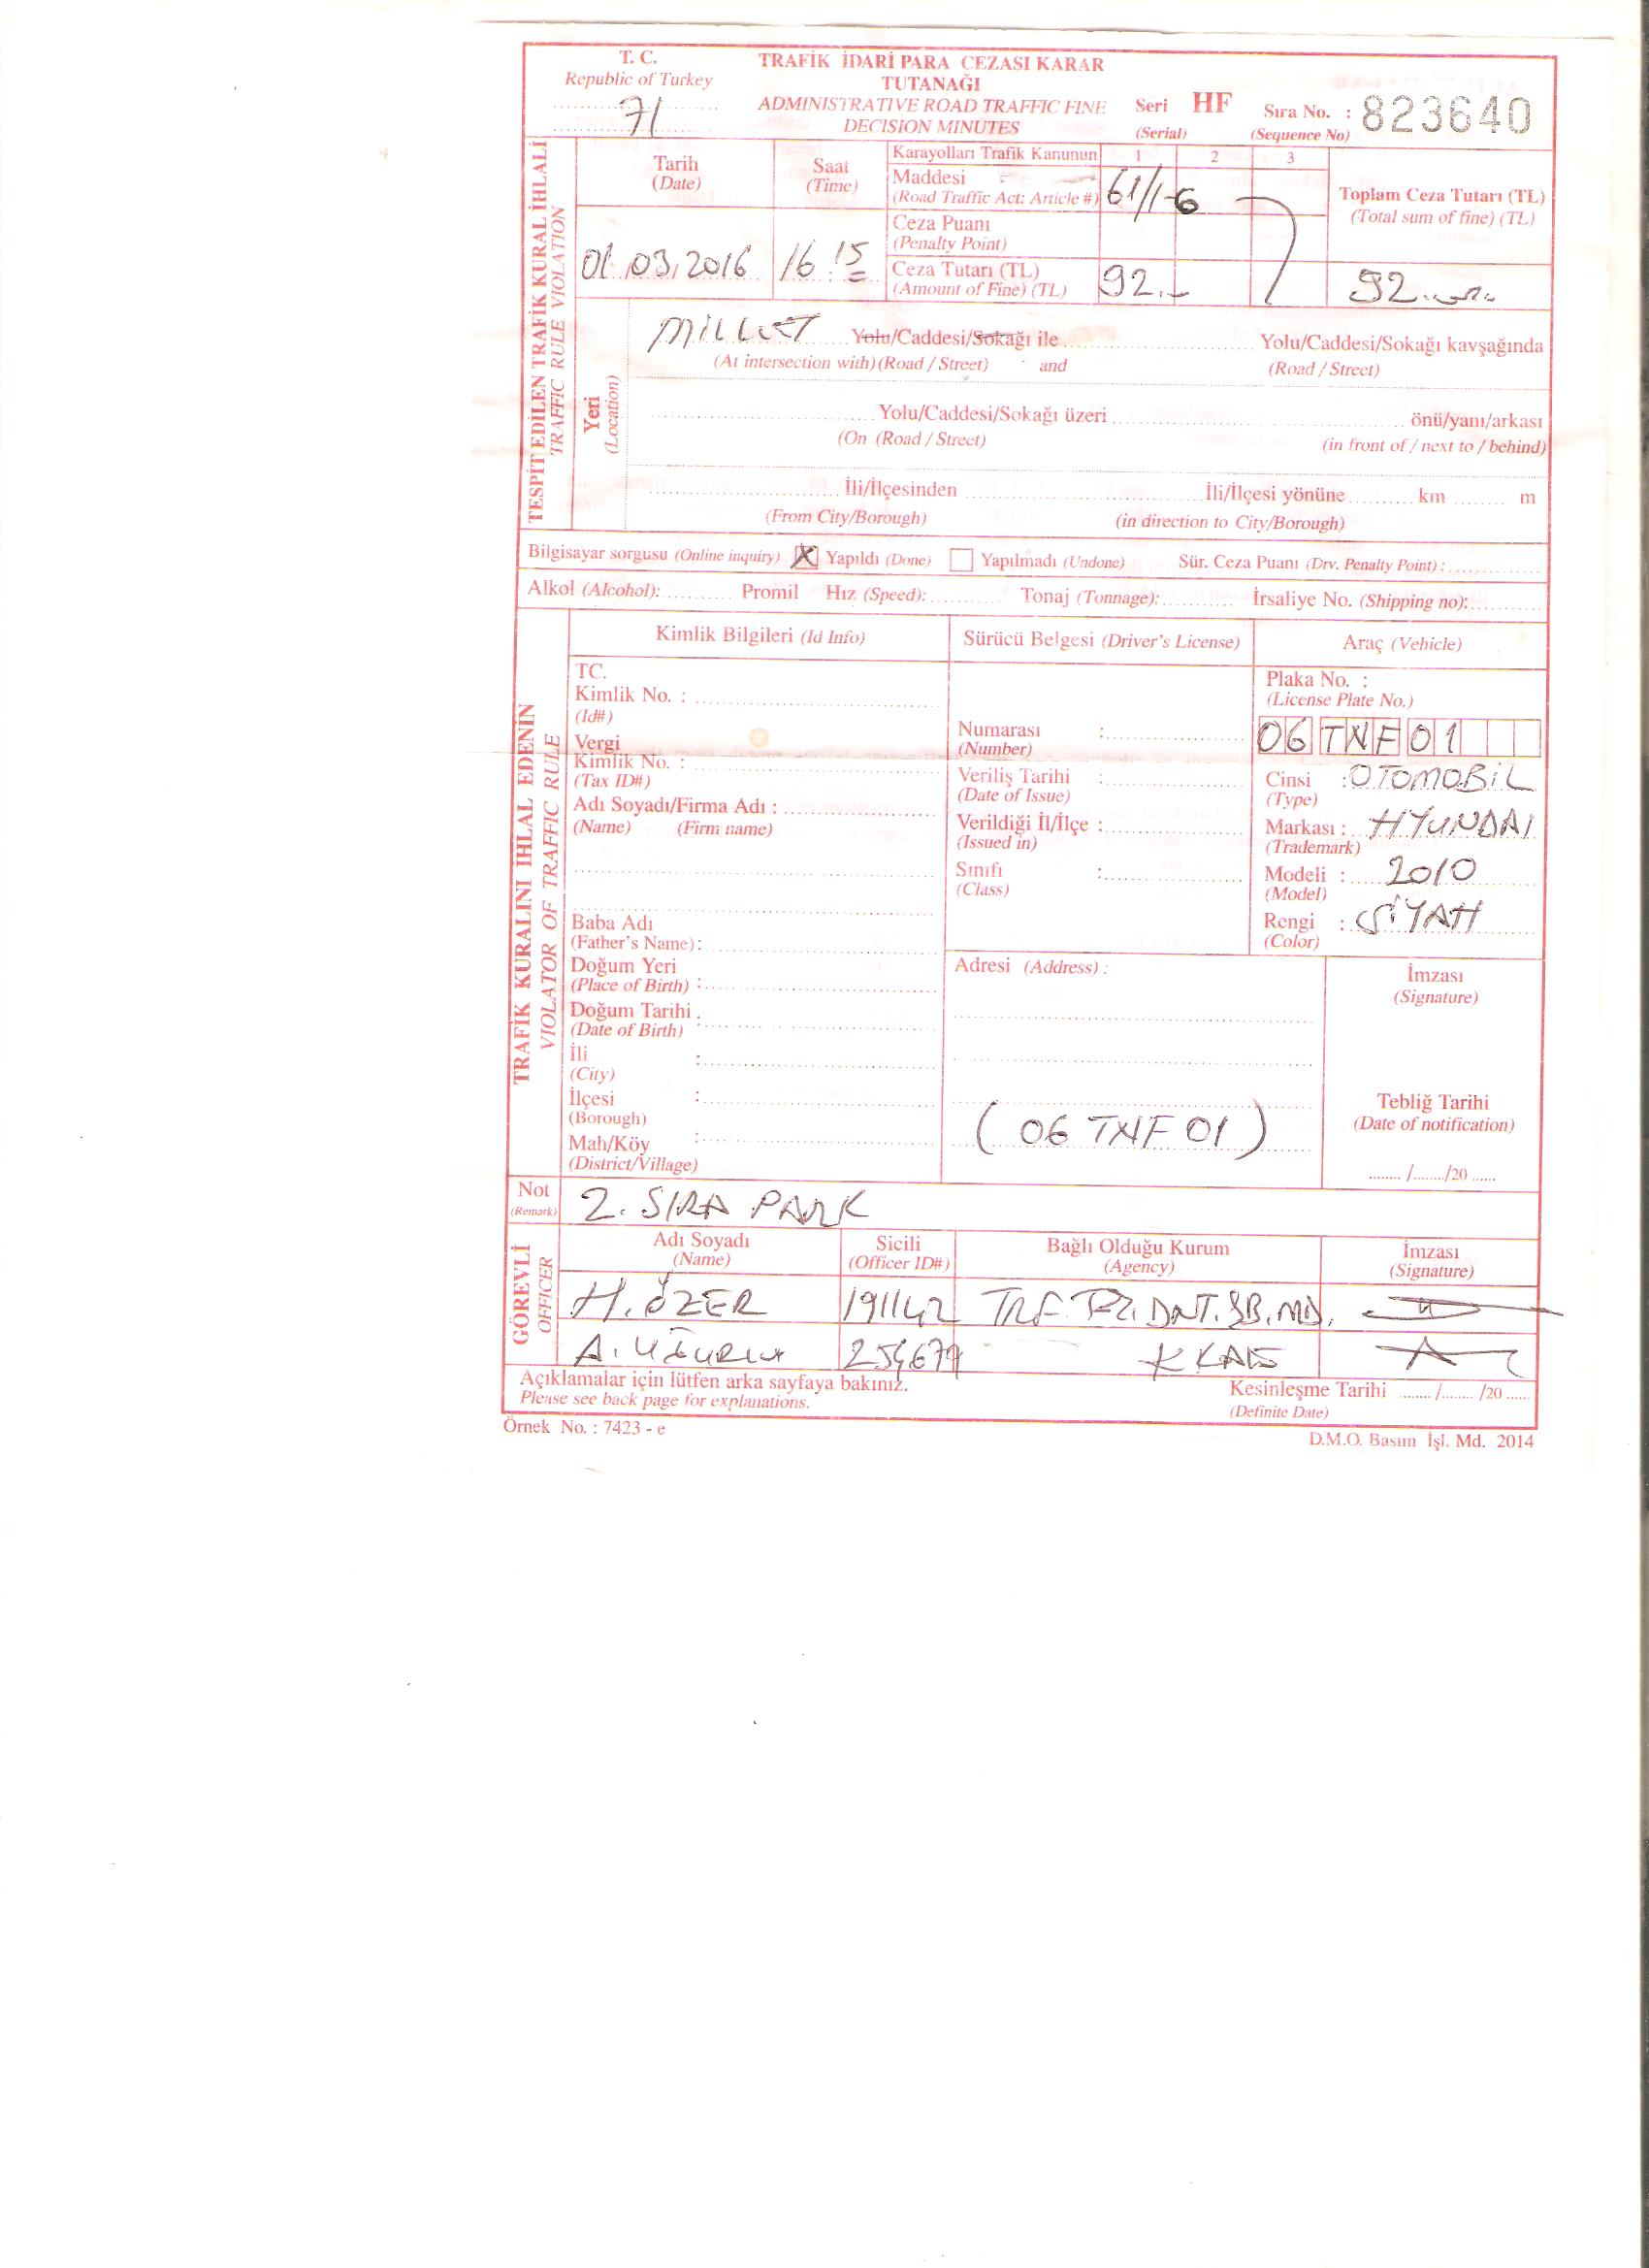 T. C.
Republic of Turkey
71
TRAFİK İDARİ PARA CEZASI KARAR
TUTANAĞI
ADMINISTRATIVE ROAD TRAFFIC FINE
DECISION MINUTES
Seri HF Sıra No. : 823640
(Serial) (Sequence No)
TESPİT EDİLEN TRAFİK KURAL İHLALİ
TRAFFIC RULE VIOLATION
Tarih
(Date)
01.03.2016
Saat
(Time)
16:15
Karayolları Trafik Kanunun 1 2 3
Maddesi
(Road Traffic Act: Article #) 61/1-6
Ceza Puanı
(Penalty Point)
Ceza Tutarı (TL)
(Amount of Fine) (TL) 92.-
Toplam Ceza Tutarı (TL)
(Total sum of fine) (TL)
92.
Yeri
(Location)
MİLLET Yolu/Caddesi/Sokağı ile Yolu/Caddesi/Sokağı kavşağında
(At intersection with) (Road / Street) and (Road / Street)
Yolu/Caddesi/Sokağı üzeri önü/yanı/arkası
(On (Road / Street) (in front of / next to / behind)
İli/İlçesinden İli/İlçesi yönüne km m
(From City/Borough) (in direction to City/Borough)
Bilgisayar sorgusu (Online inquiry) X Yapıldı (Done) Yapılmadı (Undone) Sür. Ceza Puanı (Drv. Penalty Point) :
Alkol (Alcohol): Promil Hız (Speed): Tonaj (Tonnage): İrsaliye No. (Shipping no):
TRAFİK KURALINI İHLAL EDENİN
VIOLATOR OF TRAFFIC RULE
Kimlik Bilgileri (Id Info)
TC.
Kimlik No. :
(Id#)
Vergi
Kimlik No. :
(Tax ID#)
Adı Soyadı/Firma Adı :
(Name) (Firm name)
Baba Adı
(Father's Name):
Doğum Yeri
(Place of Birth) :
Doğum Tarihi .
(Date of Birth)
İli :
(City)
İlçesi :
(Borough)
Mah/Köy :
(District/Village)
Sürücü Belgesi (Driver's License)
Numarası :
(Number)
Veriliş Tarihi :
(Date of Issue)
Verildiği İl/İlçe :
(Issued in)
Sınıfı :
(Class)
Araç (Vehicle)
Plaka No. :
(License Plate No.)
06 TNF 01
Cinsi : OTOMOBİL
(Type)
Markası : HYUNDAI
(Trademark)
Modeli : 2010
(Model)
Rengi : SİYAH
(Color)
Adresi (Address) :
(06 TNF 01)
İmzası
(Signature)
Tebliğ Tarihi
(Date of notification)
/ /20
Not
(Remark)
2. SIRA PARK
GÖREVLİ
OFFICER
Adı Soyadı
(Name)
Sicili
(Officer ID#)
Bağlı Olduğu Kurum
(Agency)
İmzası
(Signature)
H. ÖZER 191142 DNT. ŞB. MD.
A. UĞURLU 254679
Açıklamalar için lütfen arka sayfaya bakınız.
Please see back page for explanations.
Kesinleşme Tarihi / /20
(Definite Date)
Örnek No. : 7423 - e
D.M.O. Basım İşl. Md. 2014